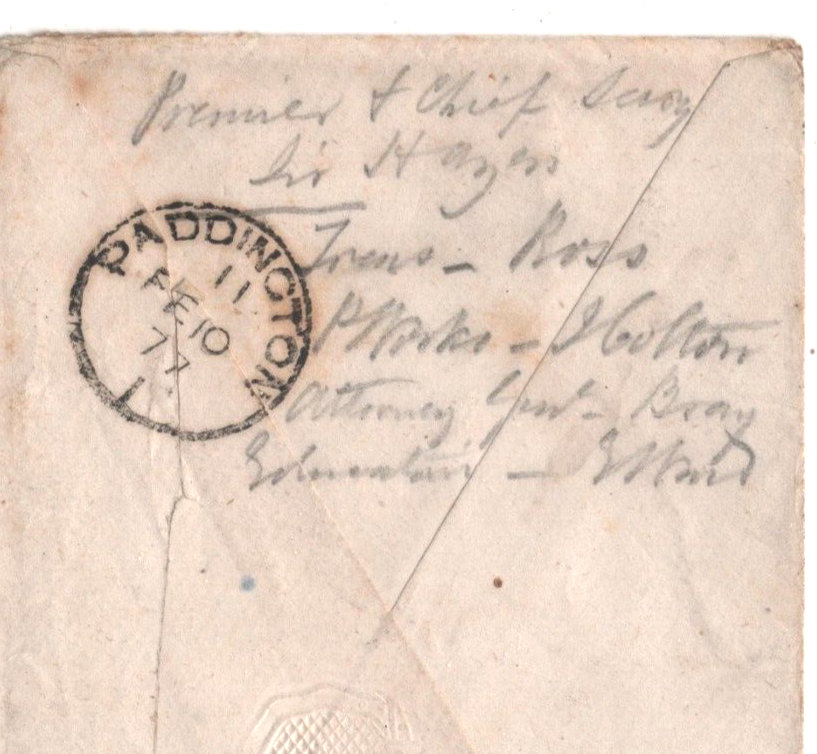 Premier & Chief Secy
Sir H Ayers
PADDINGTON
11
FE 10
77
1
Treas - Ross
P Works - J Colton
Attorney Genl - Bray
Education - E Ward